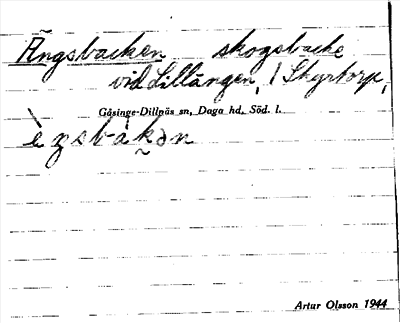 Ängsbacken skogsbacke
vid Lillängen, / Skyrtorp,
Gåsinge-Dillnäs sn, Daga hd, Söd. l.
Artur Olsson 1944